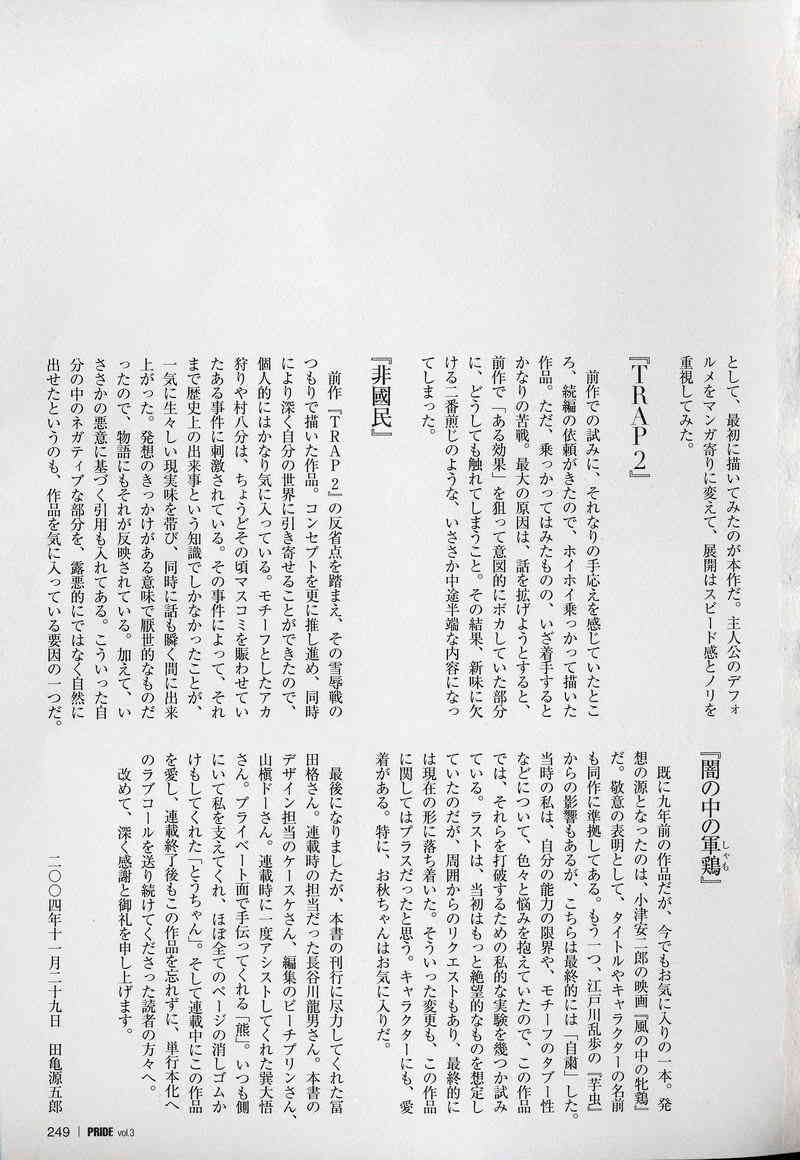 として、最初に描いてみたのが本作だ。主人公のデフォ
ルメをマンガ寄りに変えて、展開はスピード感とノリを
重視してみた。
『TRAP2』
前作での試みに、それなりの手応えを感じていたとこ
ろ、続編の依頼がきたので、ホイホイ乗っかって描いた
作品。ただ、乗っかってはみたものの、いざ着手すると
かなりの苦戦。最大の原因は、話を拡げようとすると、
前作で「ある効果」を狙って意図的にボカしていた部分
に、どうしても触れてしまうこと。その結果、新味に欠
ける二番煎じのような、いささか中途半端な内容になっ
てしまった。
『非國民』
前作『TRAP2』の反省点を踏まえ、その雪辱戦の
つもりで描いた作品。コンセプトを更に推し進め、同時
により深く自分の世界に引き寄せることができたので、
個人的にはかなり気に入っている。モチーフとしたアカ
狩りや村八分は、ちょうどその頃マスコミを賑わせてい
たある事件に刺激されている。その事件によって、それ
まで歴史上の出来事という知識でしかなかったことが、
一気に生々しい現実味を帯び、同時に話も瞬く間に出来
上がった。発想のきっかけがある意味で厭世的なものだ
ったので、物語にもそれが反映されている。加えて、い
ささかの悪意に基づく引用も入れてある。こういった自
分の中のネガティブな部分を、露悪的にではなく自然に
出せたというのも、作品を気に入っている要因の一つだ。
『闇の中の軍鶏』
しゃも
既に九年前の作品だが、今でもお気に入りの一本。発
想の源となったのは、小津安二郎の映画『風の中の牝鶏』
だ。敬意の表明として、タイトルやキャラクターの名前
も同作に準拠してある。もう一つ、江戸川乱歩の『芋虫』
からの影響もあるが、こちらは最終的には「自粛」した。
当時の私は、自分の能力の限界や、モチーフのタブー性
などについて、色々と悩みを抱えていたので、この作品
では、それらを打破するための私的な実験を幾つか試み
ている。ラストは、当初はもっと絶望的なものを想定し
ていたのだが、周囲からのリクエストもあり、最終的に
は現在の形に落ち着いた。そういった変更も、この作品
に関してはプラスだったと思う。キャラクターにも、愛
着がある。特に、お秋ちゃんはお気に入りだ。
最後になりましたが、本書の刊行に尽力してくれた冨
田格さん。連載時の担当だった長谷川龍男さん。本書の
デザイン担当のケースケさん、編集のピーチプリンさん、
山槇ドーさん。連載時に一度アシストしてくれた巽大悟
さん。プライベート面で手伝ってくれる「熊」。いつも側
にいて私を支えてくれ、ほぼ全てのページの消しゴムか
けもしてくれた「とうちゃん」。そして連載中にこの作品
を愛し、連載終了後もこの作品を忘れずに、単行本化へ
のラブコールを送り続けてくださった読者の方々へ。
改めて、深く感謝と御礼を申し上げます。
二〇〇四年十一月二十九日 田亀源五郎
249 | PRIDE vol.3